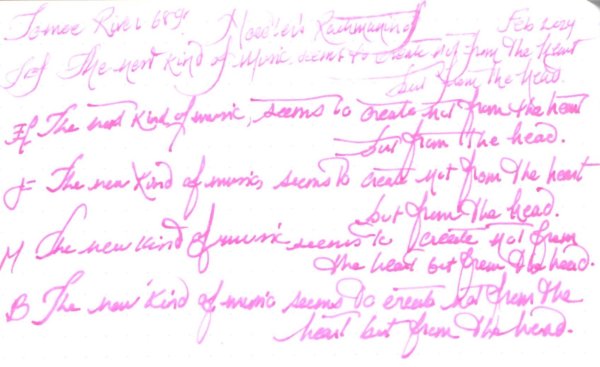 Tomoe River 68gr Noodler's Rachmaninoff Feb 2024
Ef The new kind of music seems to create not from the heart
but from the head.
Ef The new kind of music, seems to create not from the heart
but from the head.
F The new kind of music seems to create not from the heart
but from the head.
M The new kind of music seems to create not from
the heart but from the head.
B The new kind of music seems to create not from the
heart but from the head.